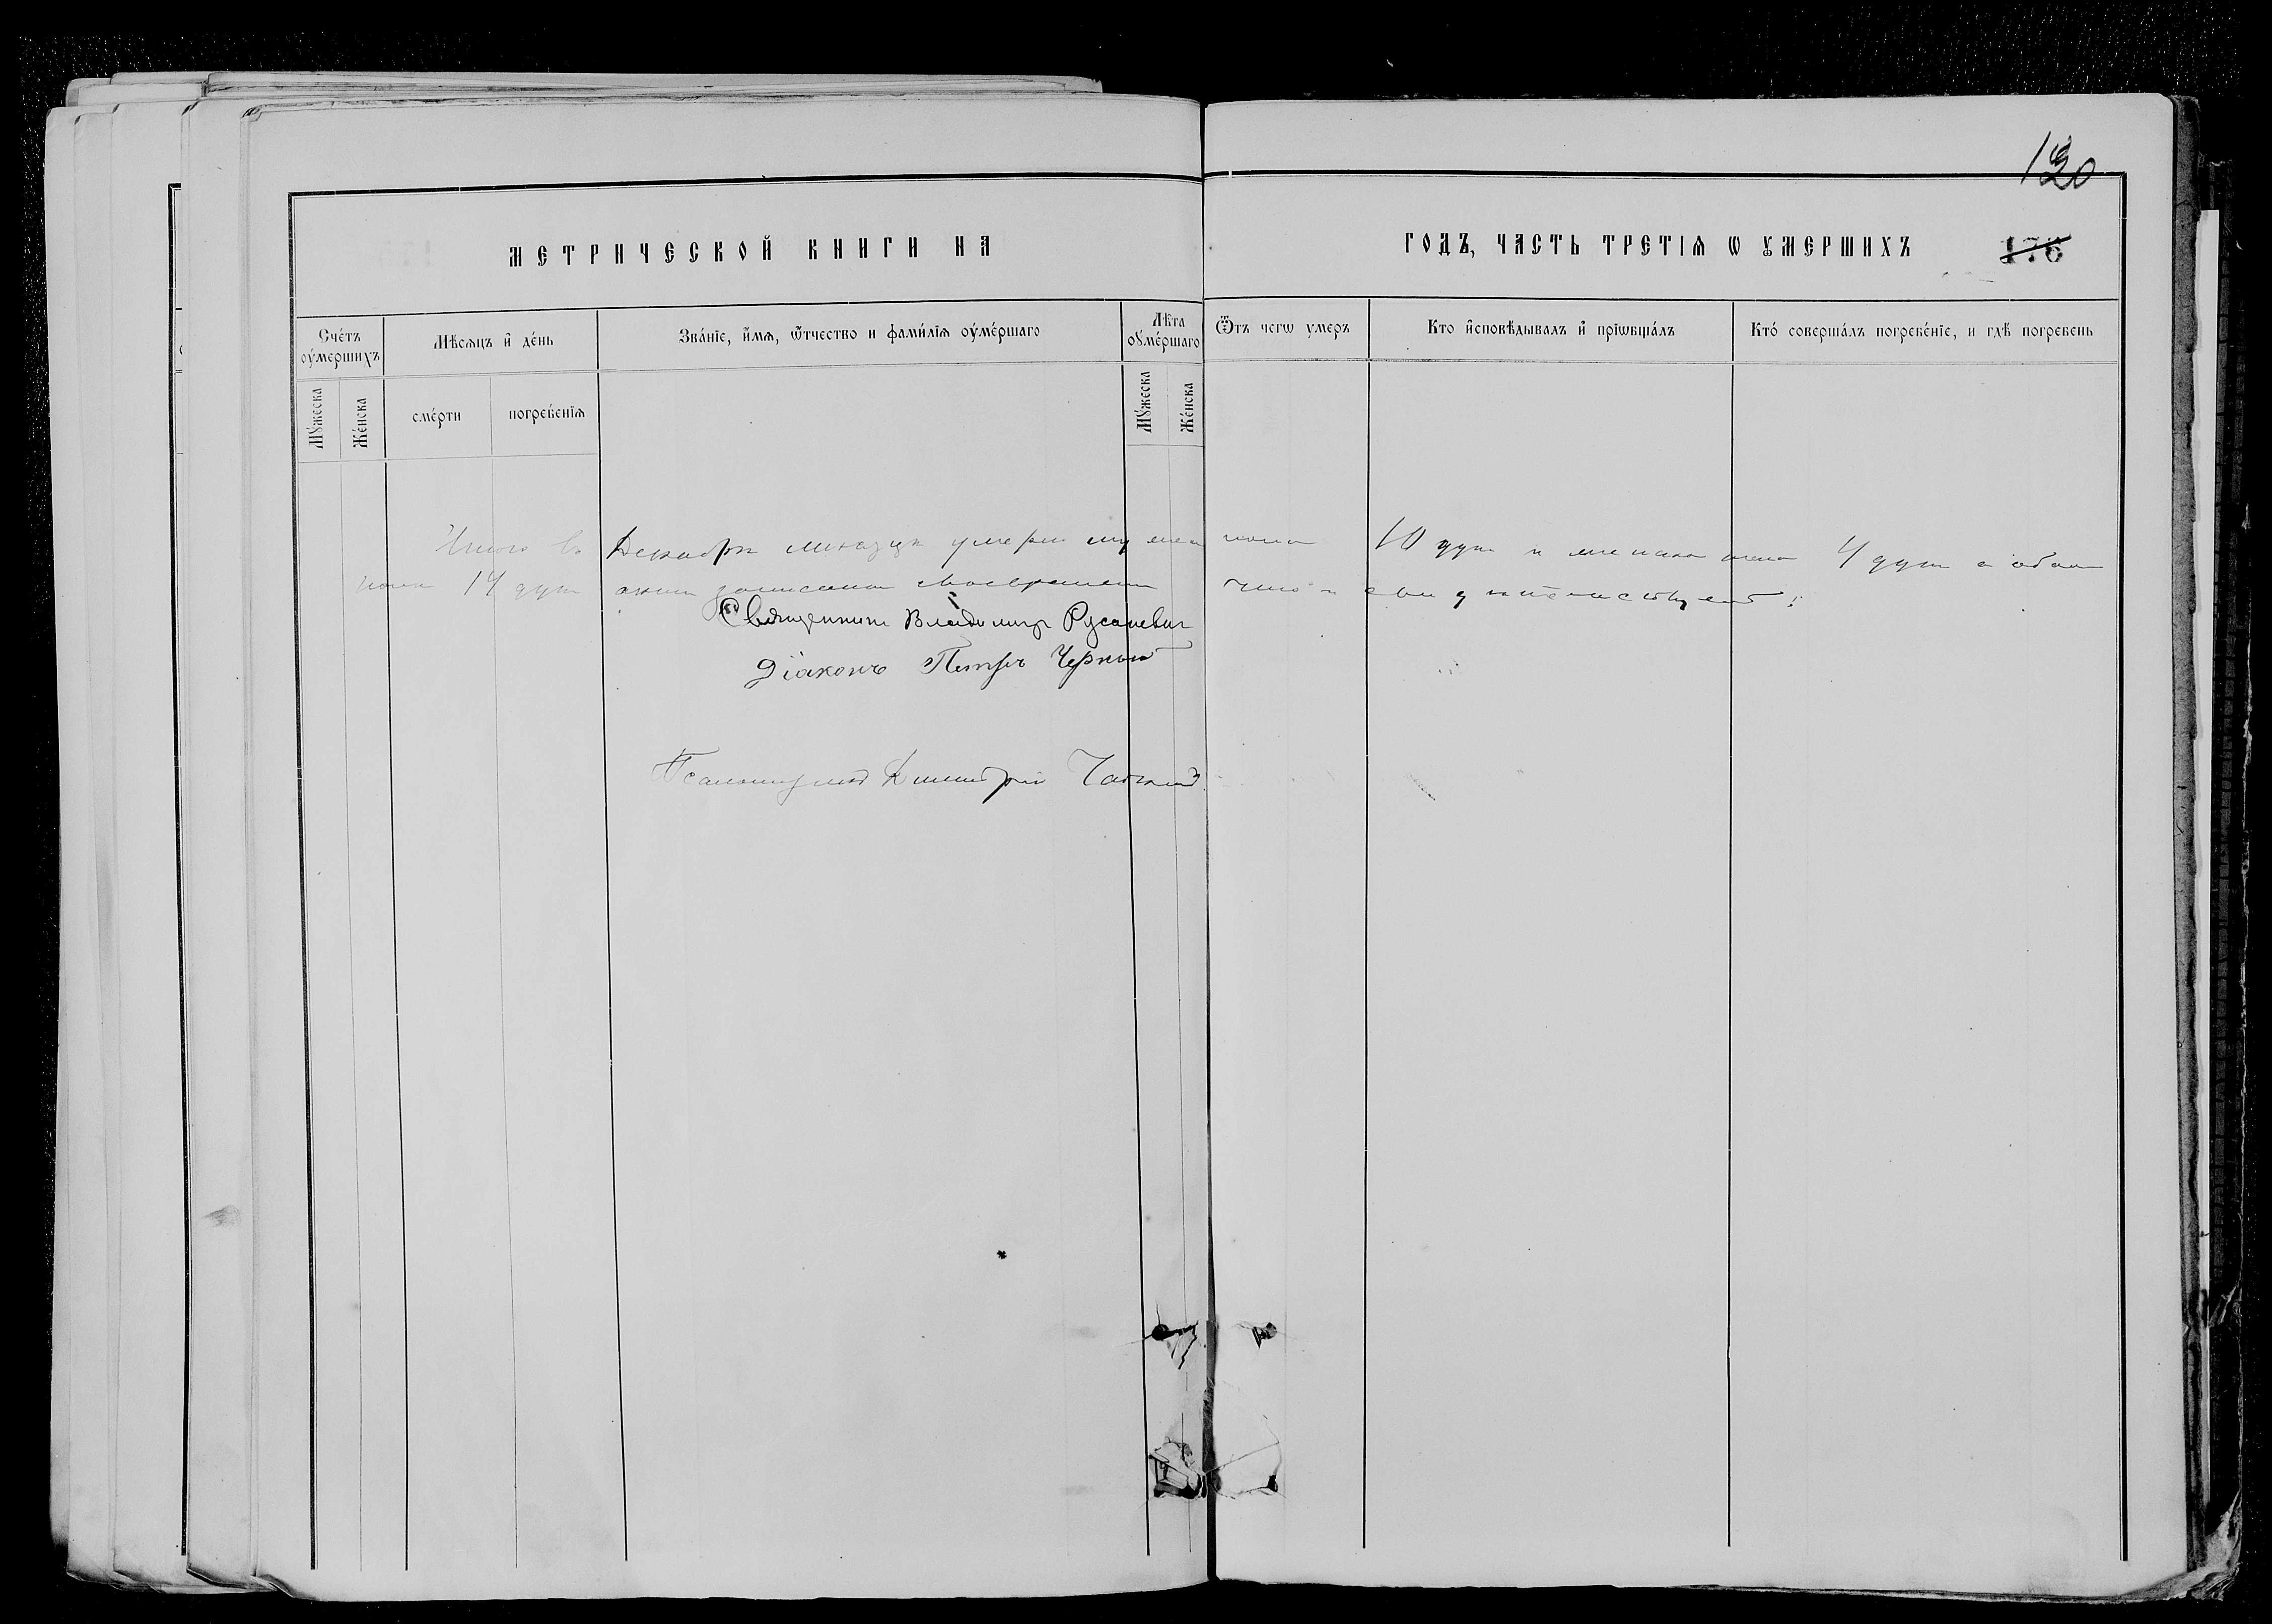 130
МЕТРИЧЕСКОЙ КНИГИ НА ГОДЪ, ЧАСТЬ ТРЕТІѦ Ѡ УМЕРШИХЪ 176
Сче́тъ оу҆ме́ршихъ
Мѣ́сѧцъ и҆ де́нь
Зва́нїе, и҆́мѧ, ѻ҆́тчество и фами́лїѧ оу҆ме́ршаго
Лѣ́та оу҆ме́ршаго
Ѿ чегѡ умеръ
Кто и҆сповѣ́дывалъ и҆ прїѡбща́лъ
Кто́ соверша́лъ погребе́нїе, и гдѣ̀ погребенъ
Мꙋ́жеска
Же́нска
сме́рти
погребе́нїѧ
Мꙋ́жеска
Же́нска
Итого въ Декабрѣ мѣсяцѣ умерло мужеска пола 10 душъ и женска пола 4 душъ а обоего
пола 14 душъ
Священникъ Владиміръ Русаневичъ
Діаконъ Петръ Черный
Псаломщикъ Димитрій